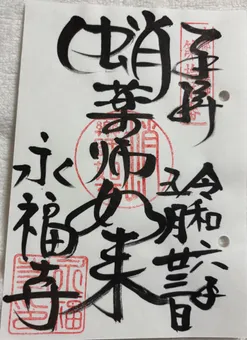 奉拝
令和六年
五月廿三日
蛸薬師如来
永福寺